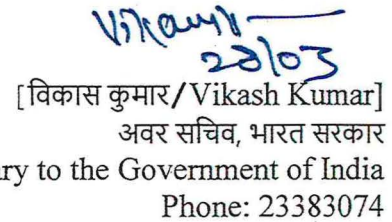 Vikash
28/03
[विकास कुमार/Vikash Kumar]
अवर सचिव, भारत सरकार
ry to the Government of India
Phone: 23383074